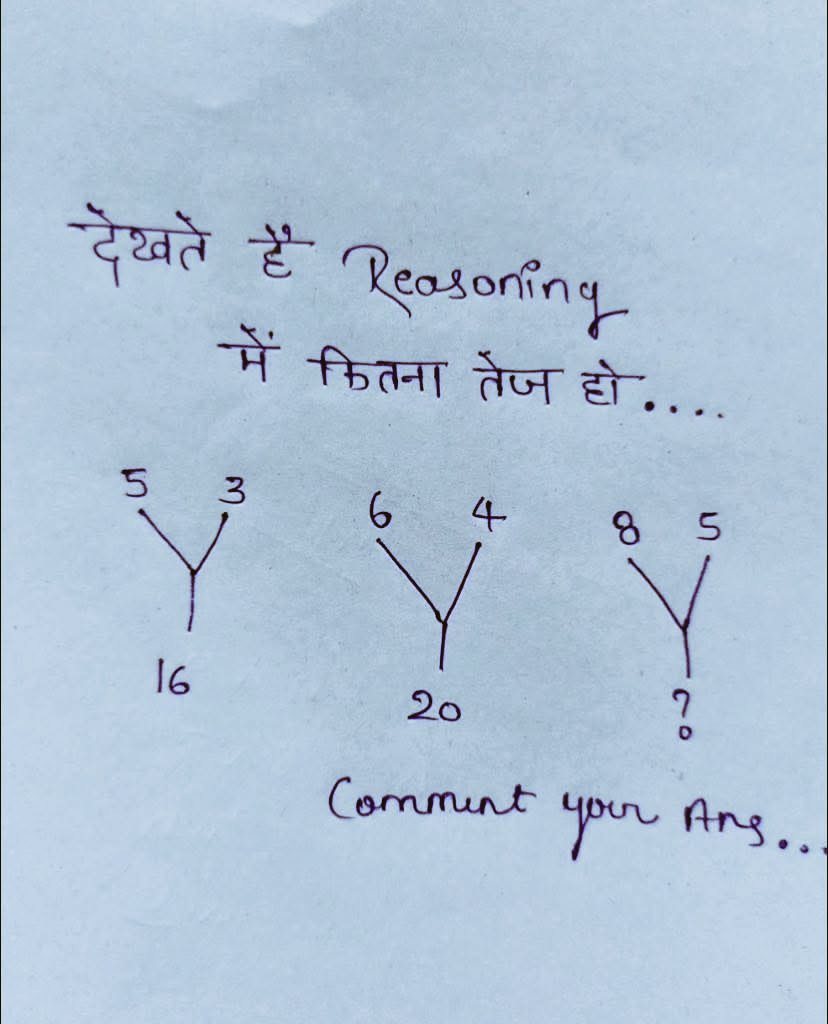 देखते है Reasoning
में कितना तेज हो....
5 3 6 4 8 5
16 20 ?
Comment your Ans...